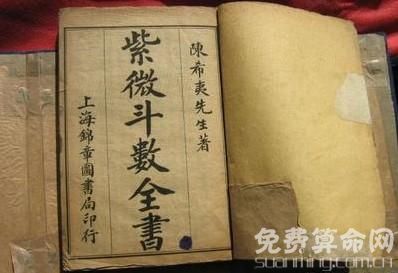 陳希夷先生著
紫微斗數全書
上海錦章圖書局印行
免费算命网
suanming.com.cn